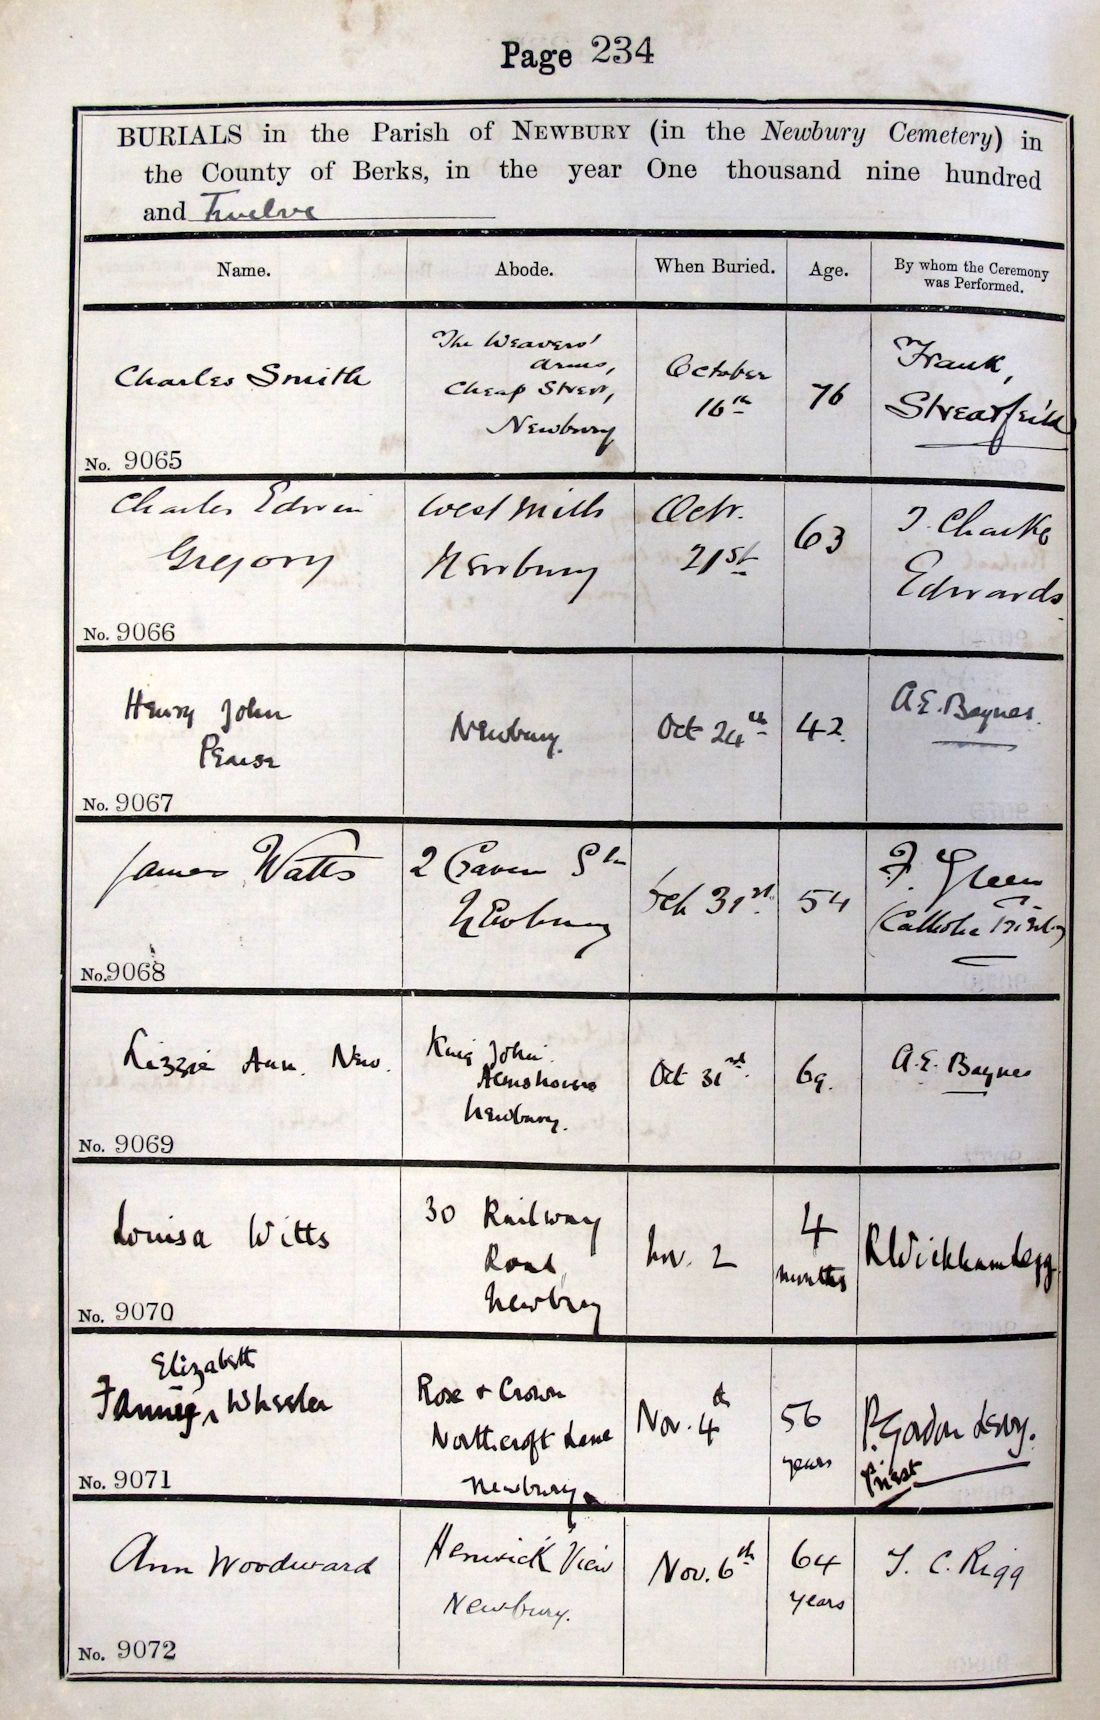 Page 234
BURIALS in the Parish of NEWBURY (in the Newbury Cemetery) in
the County of Berks, in the year One thousand nine hundred
and Twelve
Name.
Abode.
When Buried.
Age.
By whom the Ceremony
was Performed.
Charles Smith
No. 9065
The Weavers'
Arms,
Cheap Street,
Newbury
October
16th
76
Frank,
Streatfeild
Charles Edwin
Gregory
No. 9066
West Mills
Newbury
Octr.
21st
63
J. Clarke
Edwards
Henry John
Pearse
No. 9067
Newbury.
Oct 24th
42.
A.E. Baynes.
James Watts
No. 9068
2 Craven
Newbury
31st
54
F. Green
(Catholic
Lizzie Ann. New.
No. 9069
King John.
Almshouses
Newbury.
Oct 31st.
69.
A.E. Baynes
Louisa Witts
No. 9070
30 Railway
Road,
Newbury
Nov. 2
4
months
R Wickham Legg.
Elizabeth
Fanny ^ Wheeler
No. 9071
Rose + Crown
Northcroft Lane
Newbury.
Nov. 4th
56
years
P. Gordon Levy.
Priest
Ann Woodward
No. 9072
Henwick View
Newbury.
Nov. 6th
64
years
J. C. Rigg